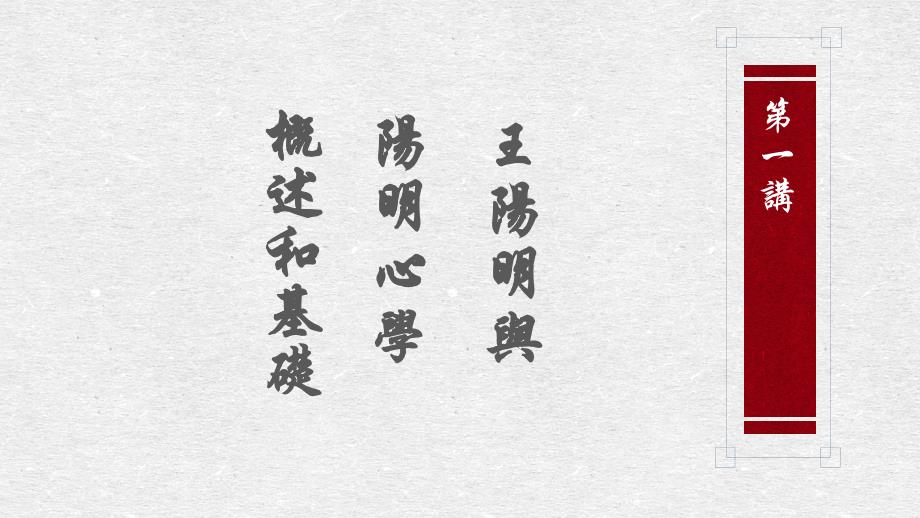 第一講
王陽明與
陽明心學
概述和基礎